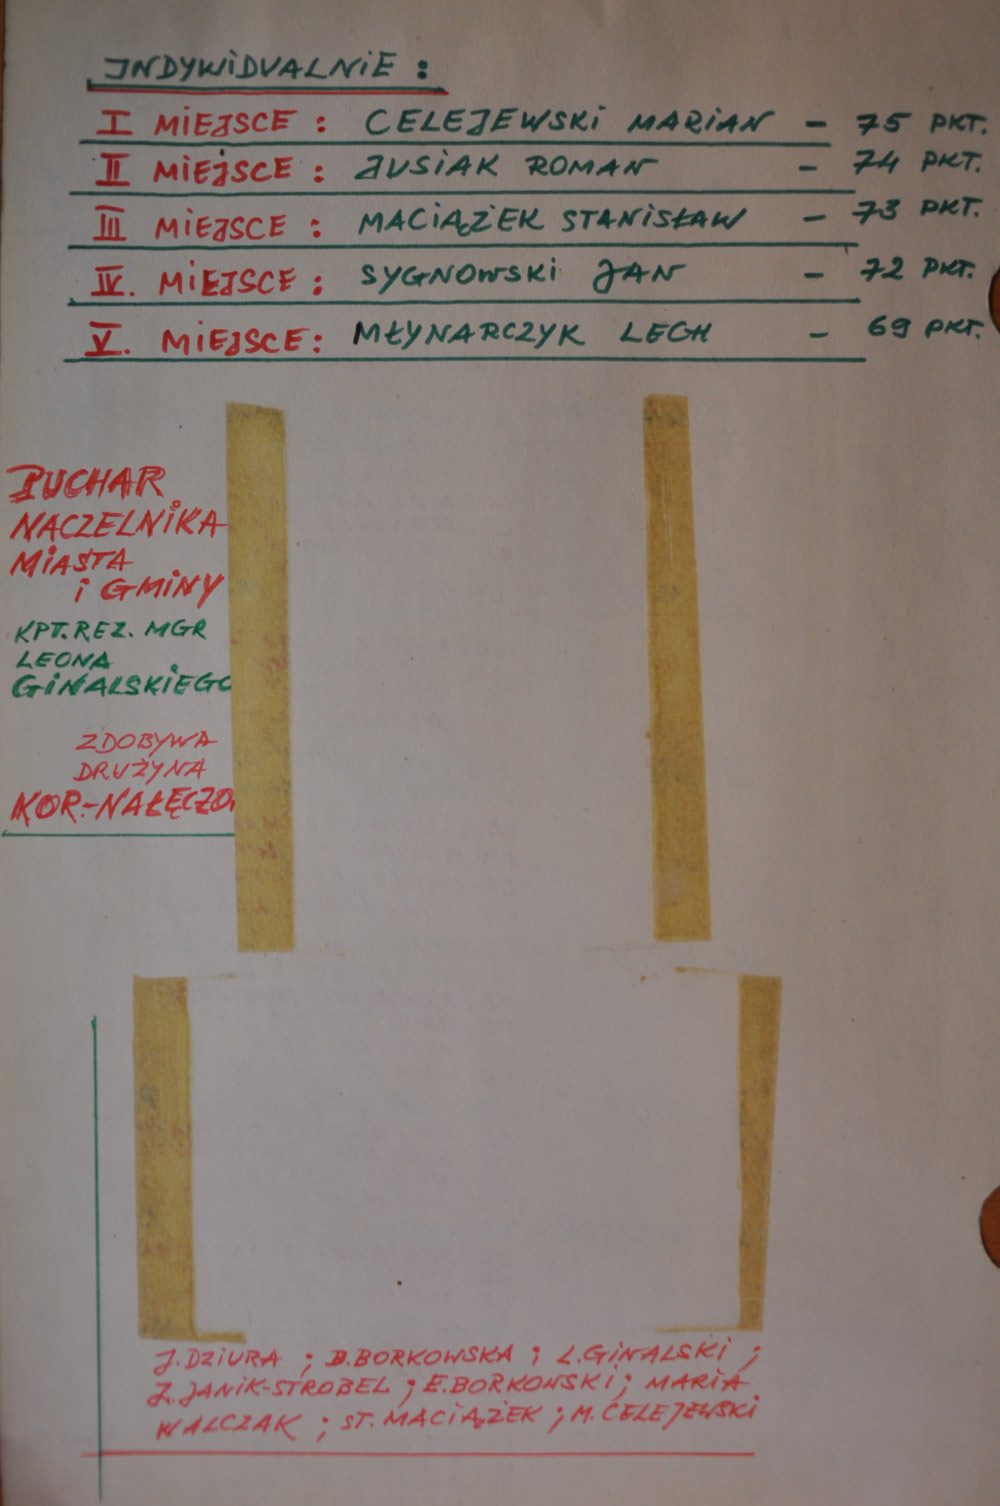 INDYWIDUALNIE :
I MIEJSCE : CELEJEWSKI MARIAN – 75 PKT.
II MIEJSCE : JUSIAK ROMAN – 74 PKT.
III MIEJSCE : MACIĄŻEK STANISŁAW – 73 PKT.
IV. MIEJSCE : SYGNOWSKI JAN – 72 PKT.
V. MIEJSCE : MŁYNARCZYK LECH – 69 PKT.
PUCHAR
NACZELNIKA
MIASTA
i GMINY
KPT. REZ. MGR
LEONA
GINALSKIEGO
ZDOBYWA
DRUŻYNA
KOR-NAŁĘCZO
J. DZIURA ; B. BORKOWSKA ; L. GINALSKI ;
Z. JANIK-STROBEL ; E. BORKOWSKI ; MARIA
WALCZAK ; ST. MACIĄŻEK ; M. CELEJEWSKI